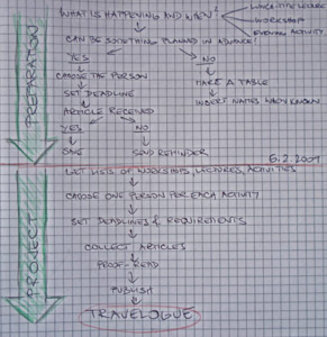 WHAT IS HAPPENING AND WHEN?
LUNCHTIME LECTURE
WORKSHOP
EVENING ACTIVITY
PREPARATION
CAN BE SOMETHING PLANNED IN ADVANCE?
YES NO
CHOOSE THE PERSON
MAKE A TABLE
SET DEADLINE
INSERT NAMES WHEN KNOWN
ARTICLE RECEIVED
YES NO
SEND REMINDER
6.2.2009
GET LISTS OF WORKSHOPS, LECTURES, ACTIVITIES
PROJECT
CHOOSE ONE PERSON PER EACH ACTIVITY
SET DEADLINES & REQUIREMENTS
COLLECT ARTICLES
PROOF-READ
PUBLISH
TRAVELOGUE